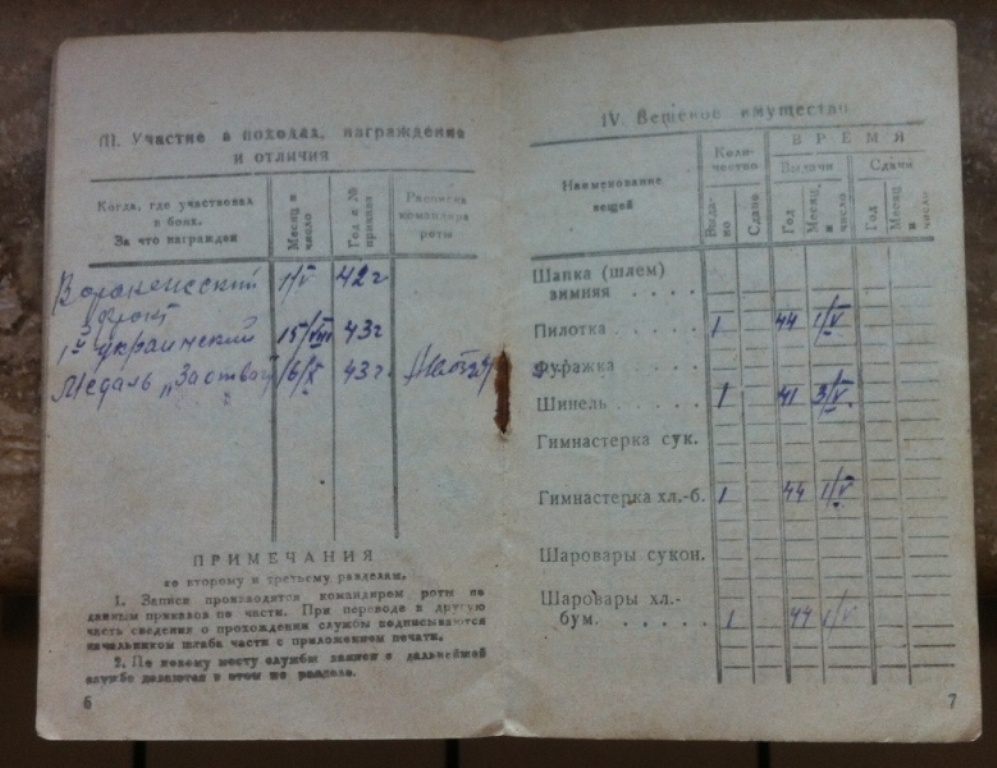 III. Участие в походах, награждение
и отличия
Когда, где участвовал
в боях.
За что награжден
Месяц и
число
Год и №
приказа
Расписка
командира
роты
Воронежский 1/V 42 г
фронт
1й украинский 15/VIII 43 г
Медаль „За отвагу 6/X 43 г.
ПРИМЕЧАНИЯ
ко второму и третьему разделам.
1. Записи производятся командиром роты по
данным приказов по части. При переводе в другую
часть сведения о прохождении службы подписываются
начальником штаба части с приложением печати.
2. По новому месту службы записи о дальнейшей
службе делаются в этом же разделе.
6
IV. Вещевое имущество
Наименование
вещей
Коли-
чество
ВРЕМЯ
Выдачи
Сдачи
Выда-
но
Сдано
Год
Месяц
и
число
Год
Месяц
и
число
Шапка (шлем)
зимняя . . . .
Пилотка . . . . . 1 44 1/V
Фуражка . . . . .
Шинель . . . . . 1 41 3/V
Гимнастерка сук.
Гимнастерка хл.-б. 1 44 1/V
Шаровары сукон.
Шаровары хл.-
бум. . . . . . . 1 44 1/V
7